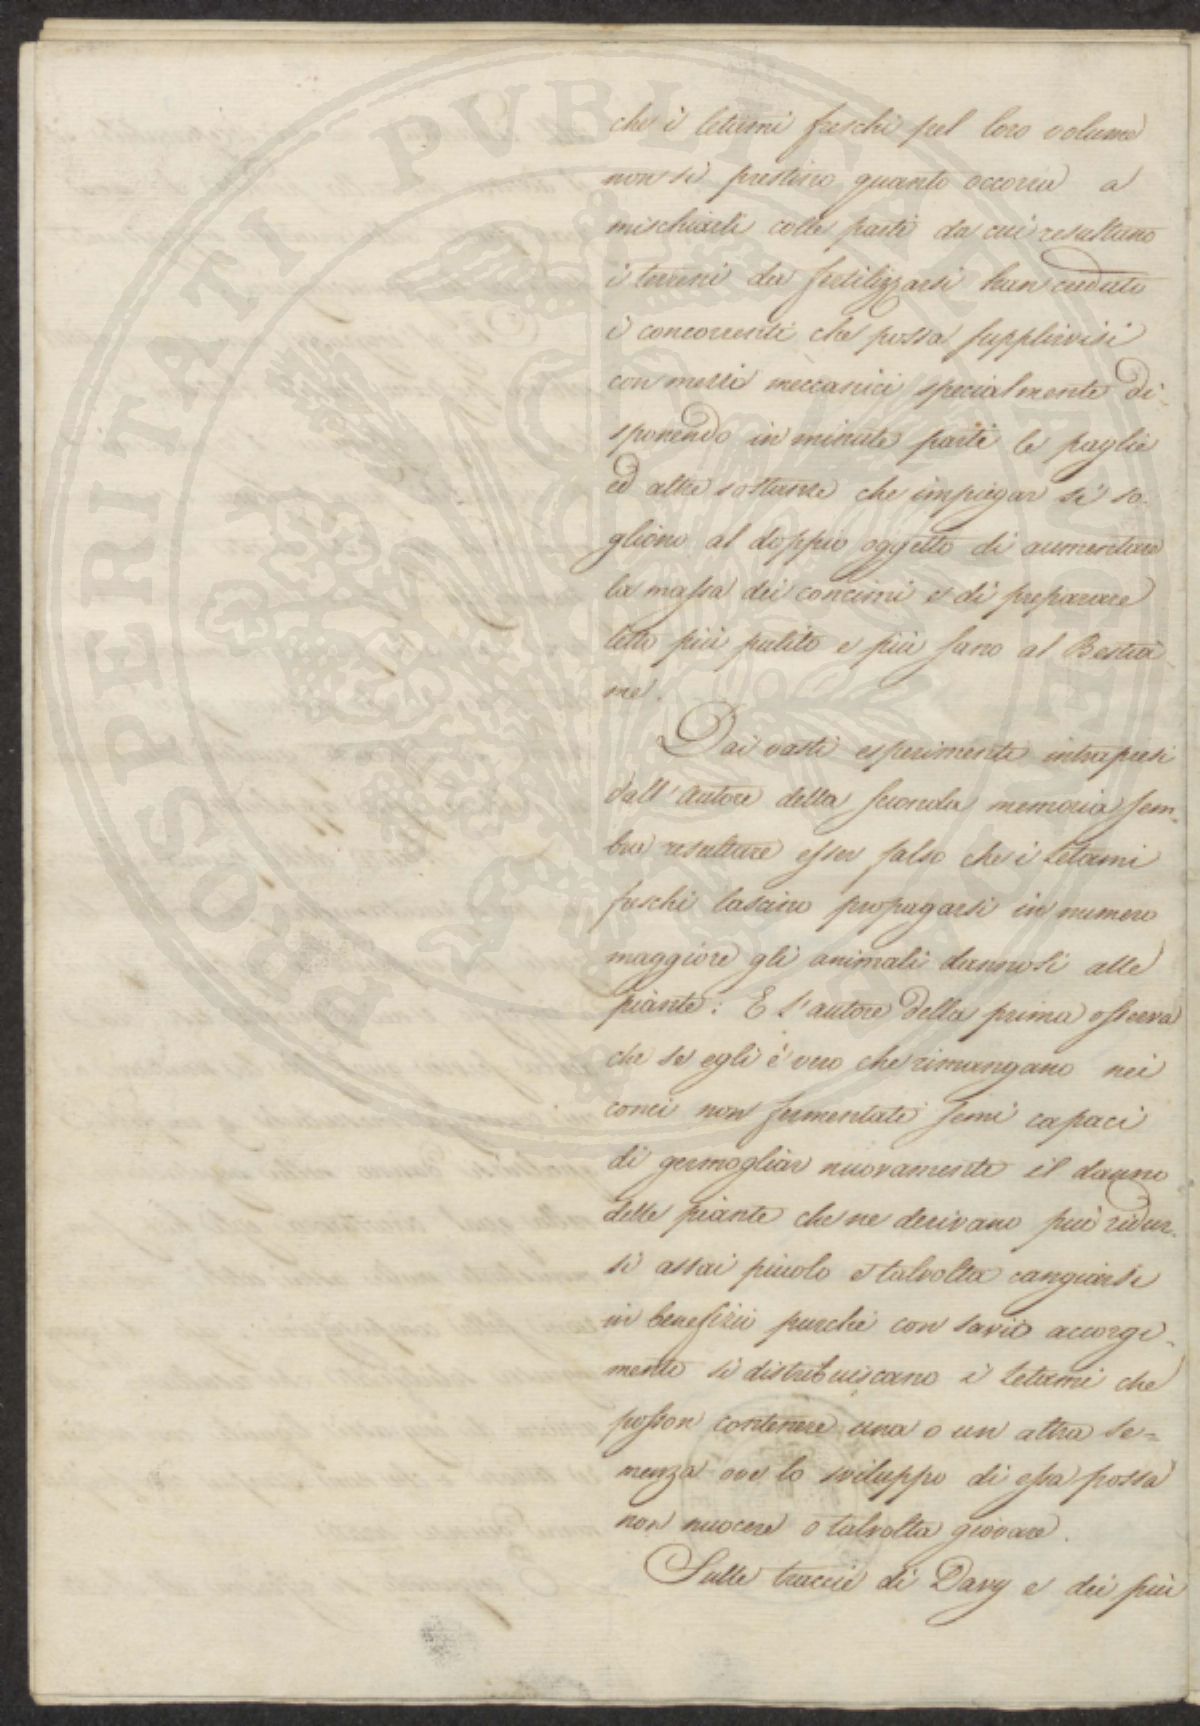 che i letami freschi pel loro volume
non si prestino quanto occorra a
mischiarli colle parti da cui resultano
i terreni da fertilizzarsi han creduto
i concorrenti che possa supplirvisi
con mezzi meccanici specialmente di
sponendo in minute parti le paglie
ed altre sostanze che impiegar si so-
gliono al doppio oggetto di aumentare
la massa dei concimi e di preparare
letto più pulito e più sano al Bestia
me.
Dai vasti esperimenti intrapresi
dall'Autore della seconda memoria sem-
bra resultare esser falso che i Letami
freschi lascino propagarsi in numero
maggiore gli animali dannosi alle
piante: E l'autore della prima osserva
che se egli è vero che rimangano nei
conci non fermentati semi capaci
di germogliar nuovamente il danno
delle piante che ne derivano può ridur-
si assai piccolo e talvolta cangiarsi
in benefizii purchè con savio accorgi-
mento si distribuiscano i Letami che
posson contenere una o un altra se=
menza ove lo sviluppo di essa possa
non nuocere o talvolta giovare.
Sulle traccie di Davy e dei più
PROSPERITATI PVBLICAE AVGENDAE